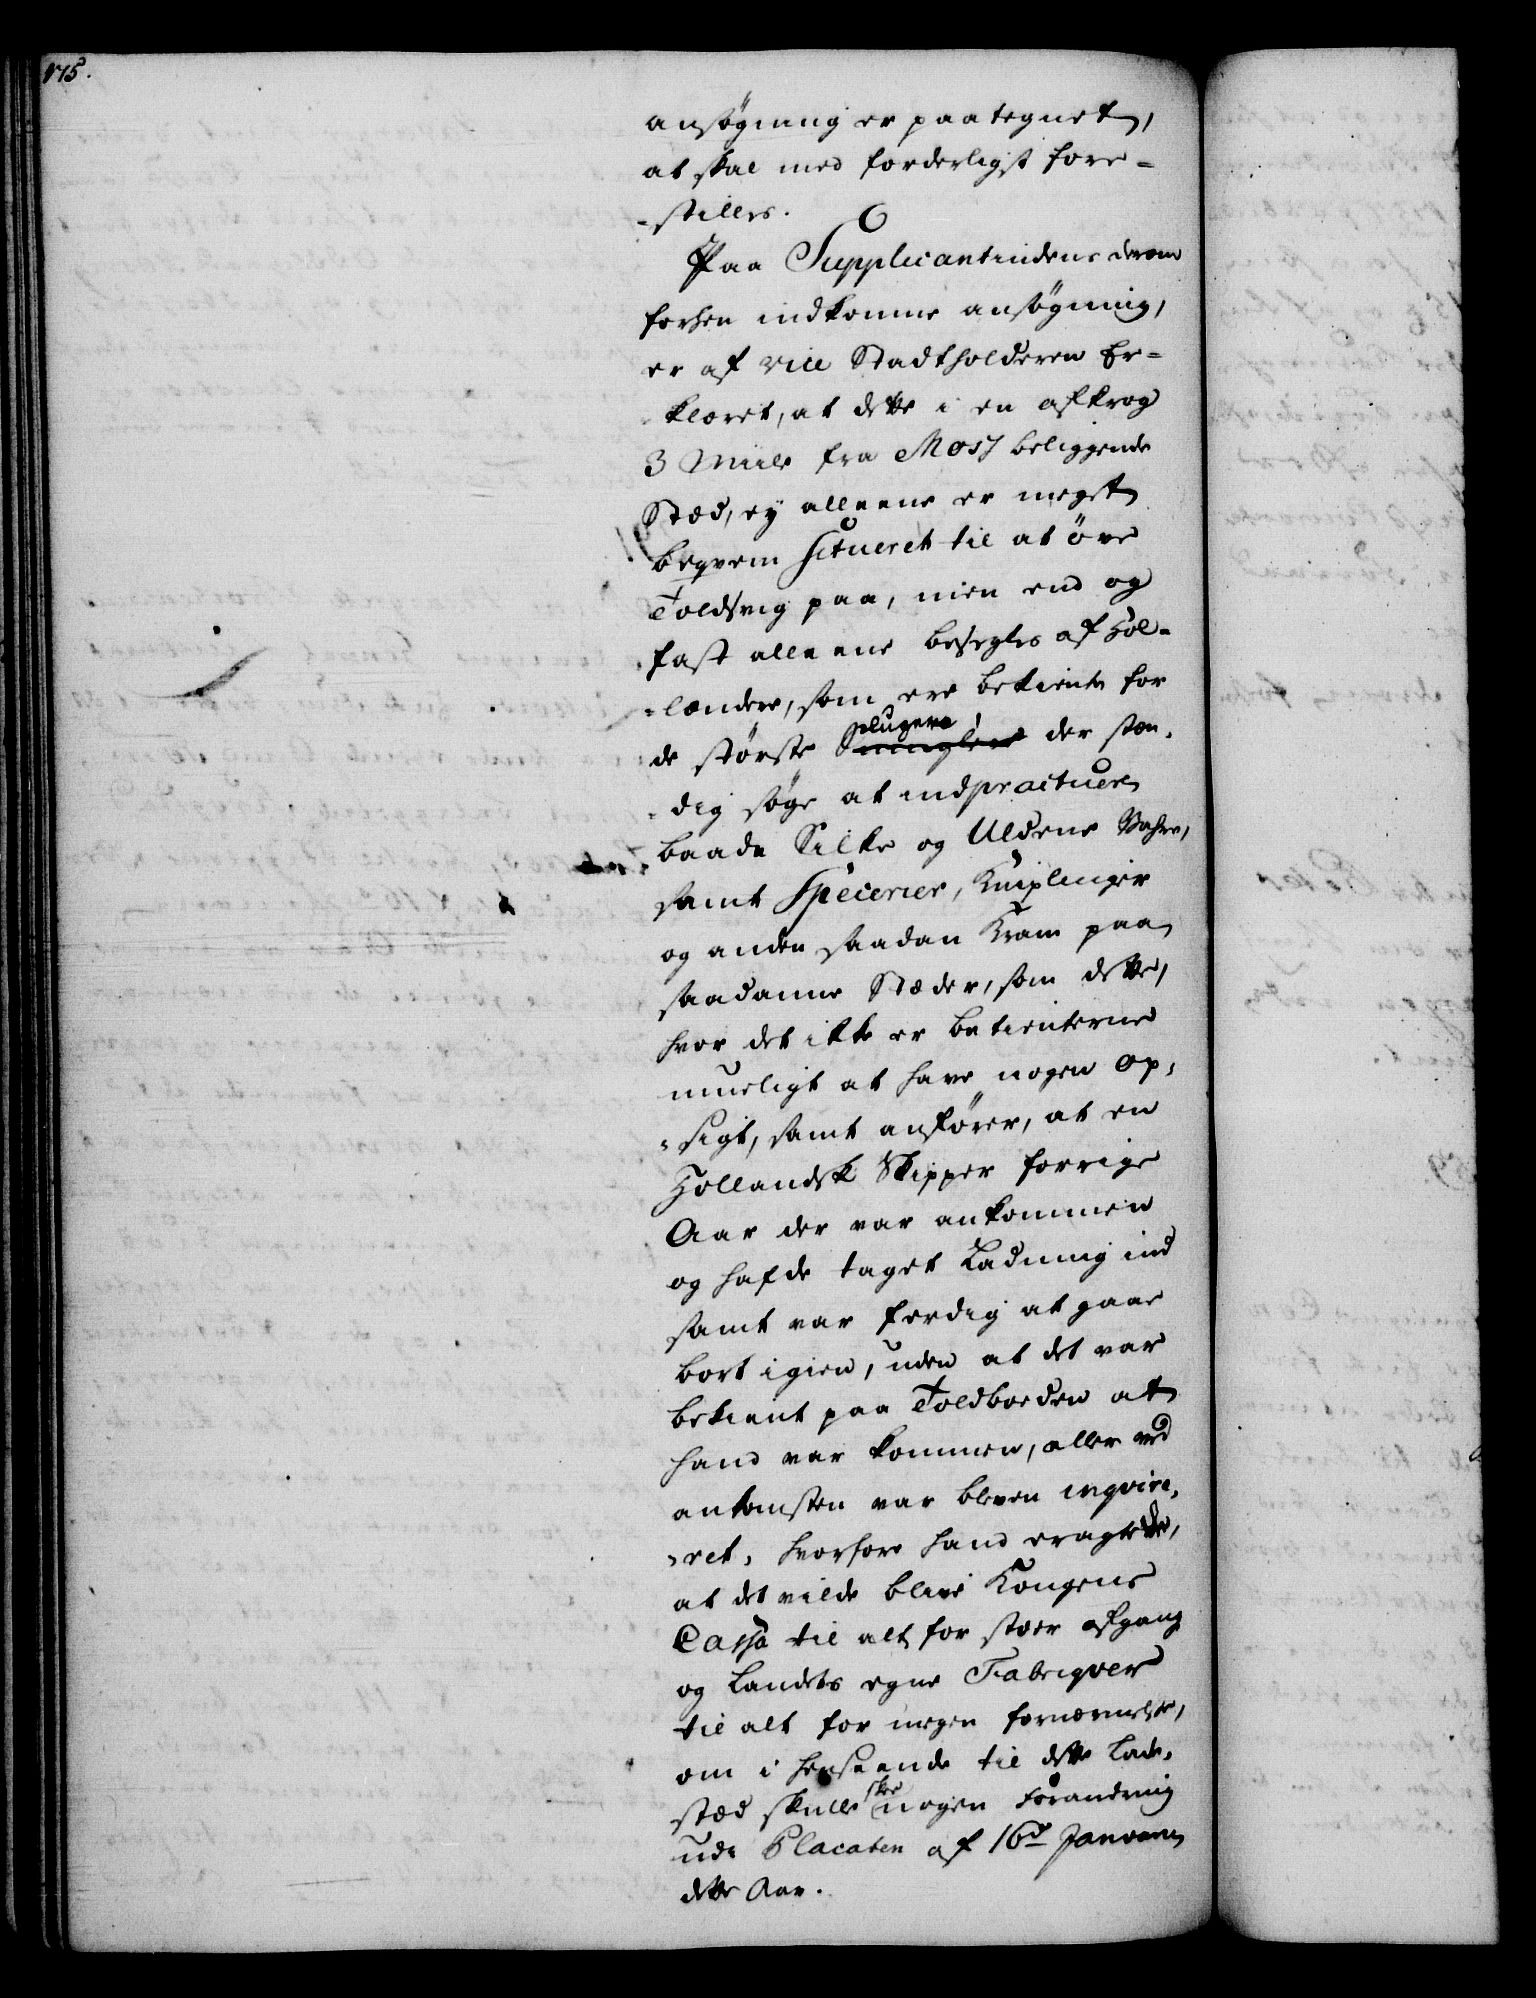 175.
ansøgning er paategnet,
at skal med forderligst fore-
-stilles.
Paa Supplicantindens derom
forhen indkomne ansøgning,
er af vice Stadtholderen Er-
klæret, at dette i en afkrog
3 Miile fra Moss beliggende
Stæd, ey alleene er meget
beqvem situeret til at öve
Toldsvig paa, men end og
fast alleene besegles af Hol-
-lændere, som ere bekiente for
de störste Slugere der stæn-
-dig søge at indpracticere
baade Silke og Uldene Vahre,
samt Specerier, Kniplinger
og anden saadan Kram paa
saadanne Stæder, som dette,
hvor det ikke er betienterne
mueligt at have nogen Op-
-sigt, samt anfører, at en
Hollandsk Skipper forrige
Aar der var ankommen
og hafde taget Ladning ind
samt var ferdig at gaae
bort igien, uden at det var
bekient paa Toldboeden at
hand var kommen, eller ved
ankomsten var bleven inqvire-
-ret, hvorfore hand eragtede,
at det vilde blive Kongens
Cassa til alt for stoer afgang
og Landets egne Fabriqver
til alt for megen fornærmelse,
om i henseende til dette Lade-
stæd skulle skee nogen Forandring
udi Placaten af 16de Januarii
dette Aar.